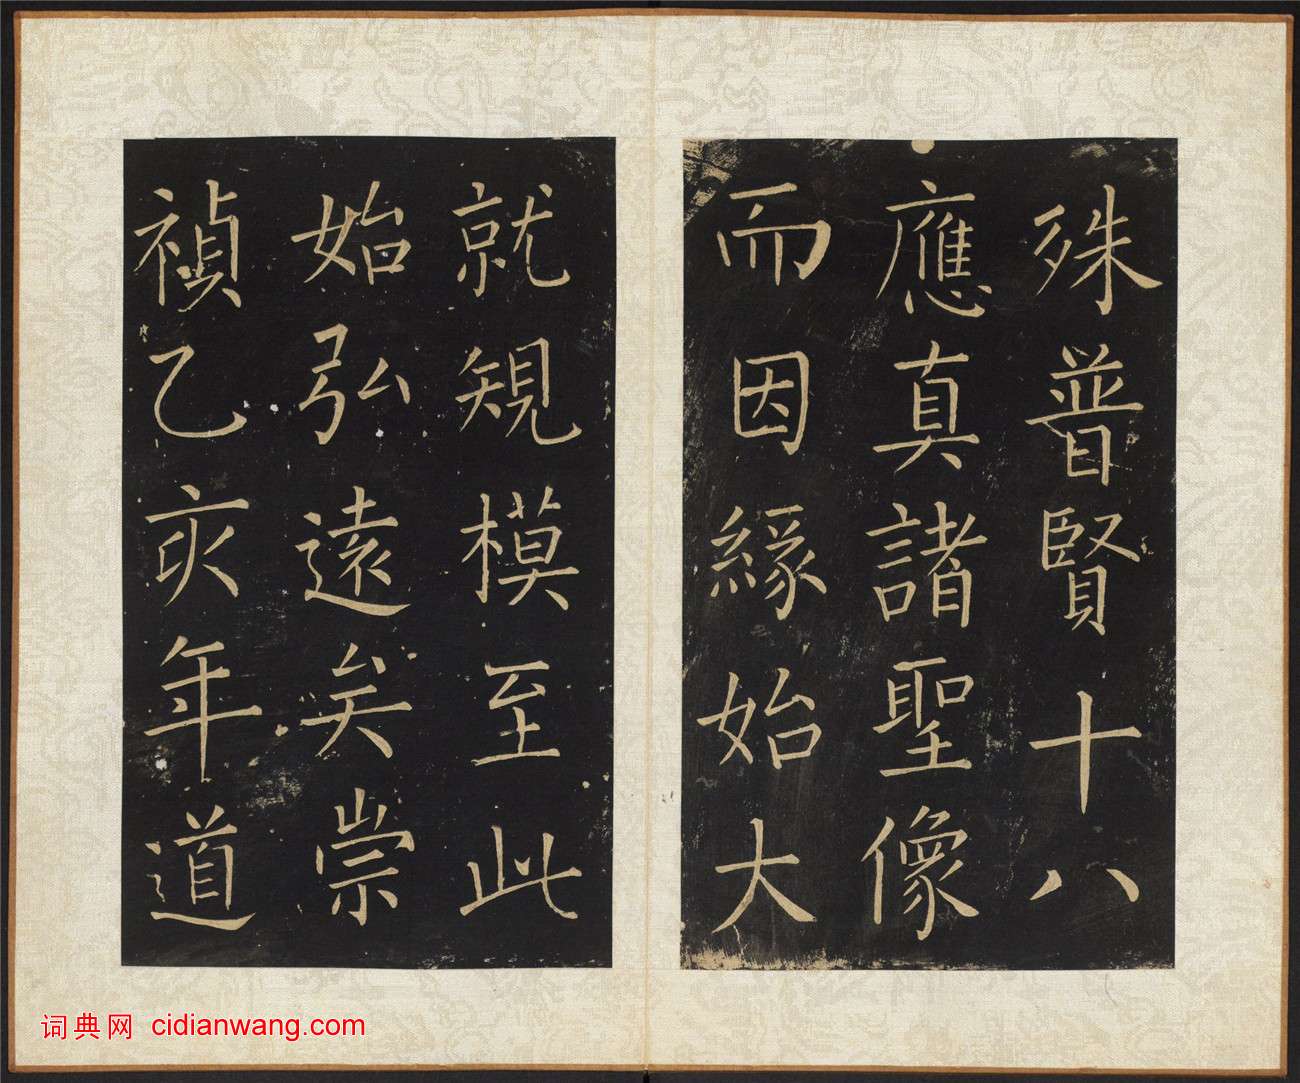 殊普賢十八
應真諸聖像
而因緣始大
就規模至此
始弘遠矣崇
禎乙亥年道
词典网 cidianwang.com